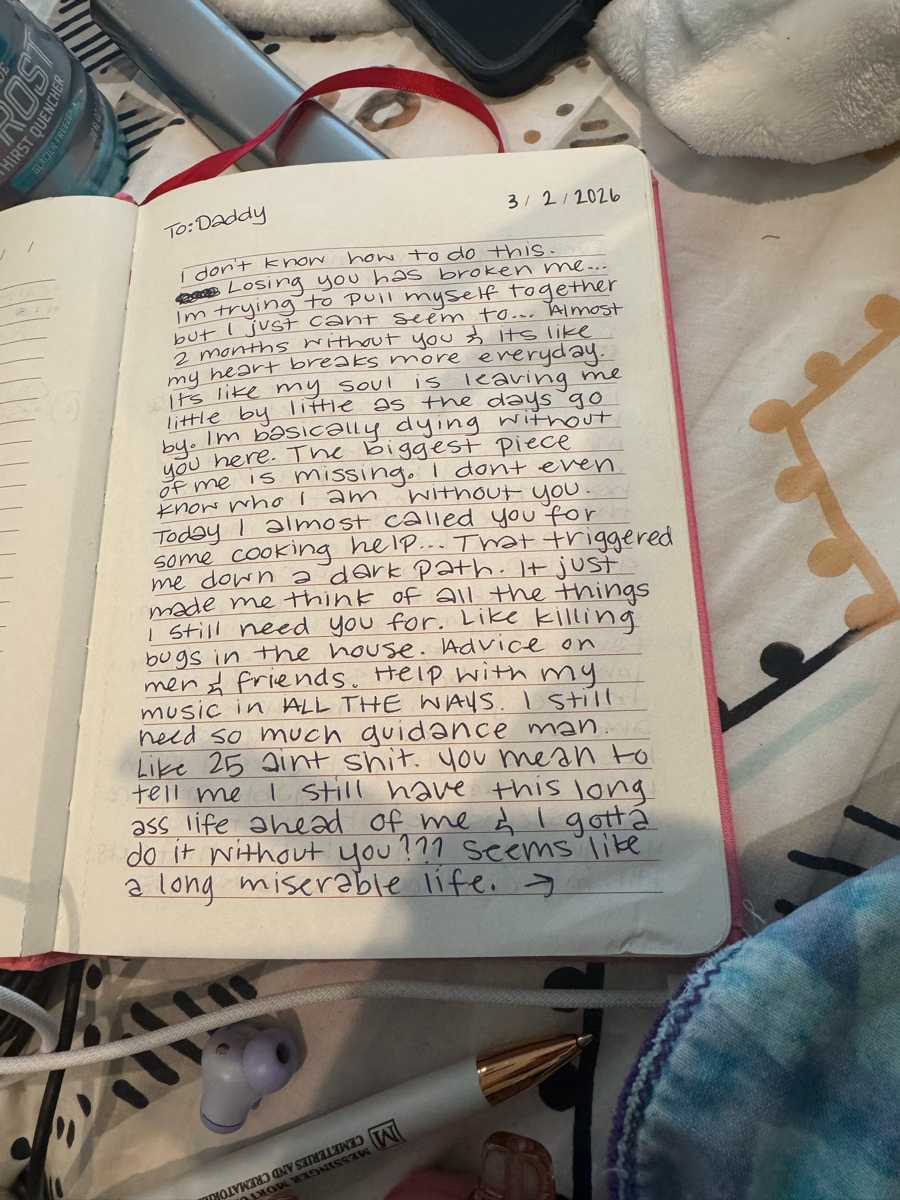 ROST
THIRST QUENCHER
GLACIER FREEZE
To: Daddy
3 / 2 / 2026
I don't know how to do this.
Losing you has broken me...
Im trying to pull myself together
but I just cant seem to... Almost
2 months without you & its like
my heart breaks more everyday.
Its like my soul is leaving me
little by little as the days go
by. Im basically dying without
you here. The biggest piece
of me is missing. I dont even
know who I am without you.
Today I almost called you for
some cooking help... That triggered
me down a dark path. It just
made me think of all the things
I still need you for. Like killing
bugs in the house. Advice on
men & friends. Help with my
music in ALL THE WAYS. I still
need so much guidance man.
Like 25 aint shit. You mean to
tell me I still have this long
ass life ahead of me & I gotta
do it without you??? Seems like
a long miserable life. →
M
MESSINGER
CEMETERIES AND